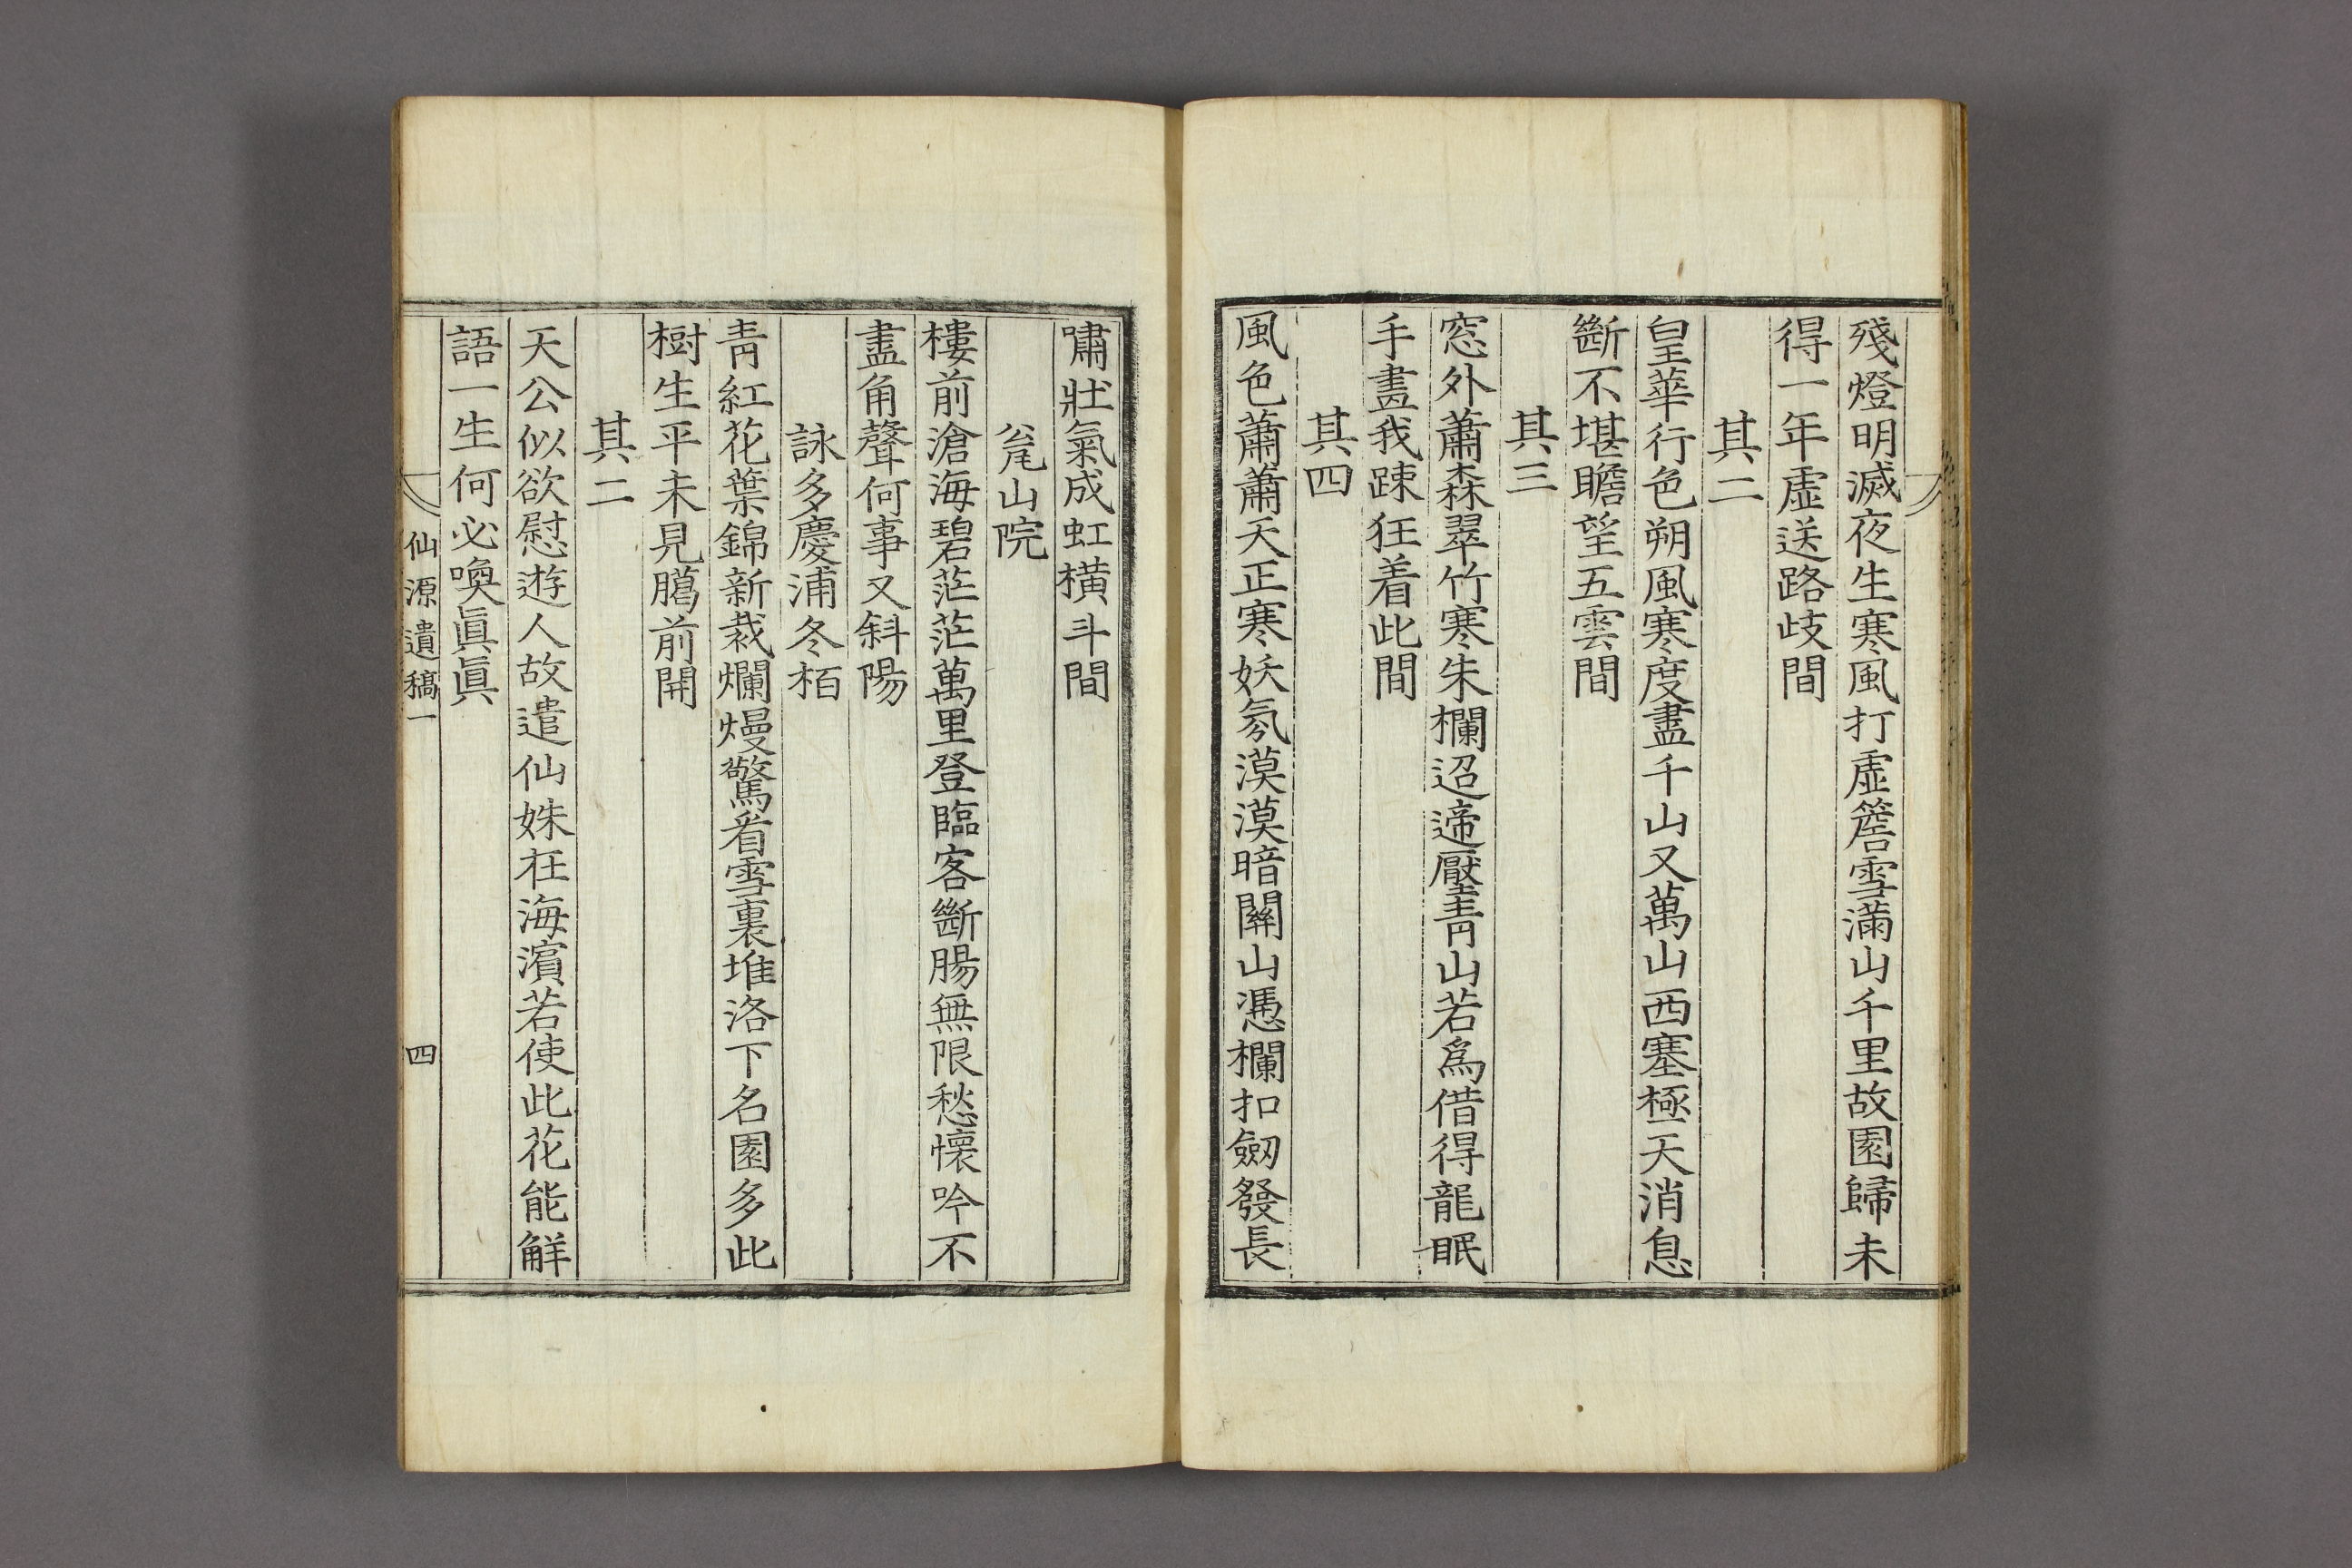 殘燈明滅夜生寒風打虛簷雪滿山千里故園歸未
得一年虛送路歧間
其二
皇華行色朔風寒度盡千山又萬山西塞極天消息
斷不堪瞻望五雲間
其三
窓外蕭森翠竹寒朱欄迢遞壓靑山若爲借得龍眠
手畫我踈狂着此間
其四
風色蕭蕭天正寒妖氛漠漠暗關山憑欄扣劒發長
嘯壯氣成虹橫斗間
瓮山院
樓前滄海碧茫茫萬里登臨客斷腸無限愁懷吟不
盡角聲何事又斜陽
詠多慶浦冬栢
靑紅花葉錦新裁爛熳驚看雪裏堆洛下名園多此
樹生平未見臈前開
其二
天公似欲慰遊人故遣仙姝在海濱若使此花能解
語一生何必喚眞眞
仙源遺稿一
四